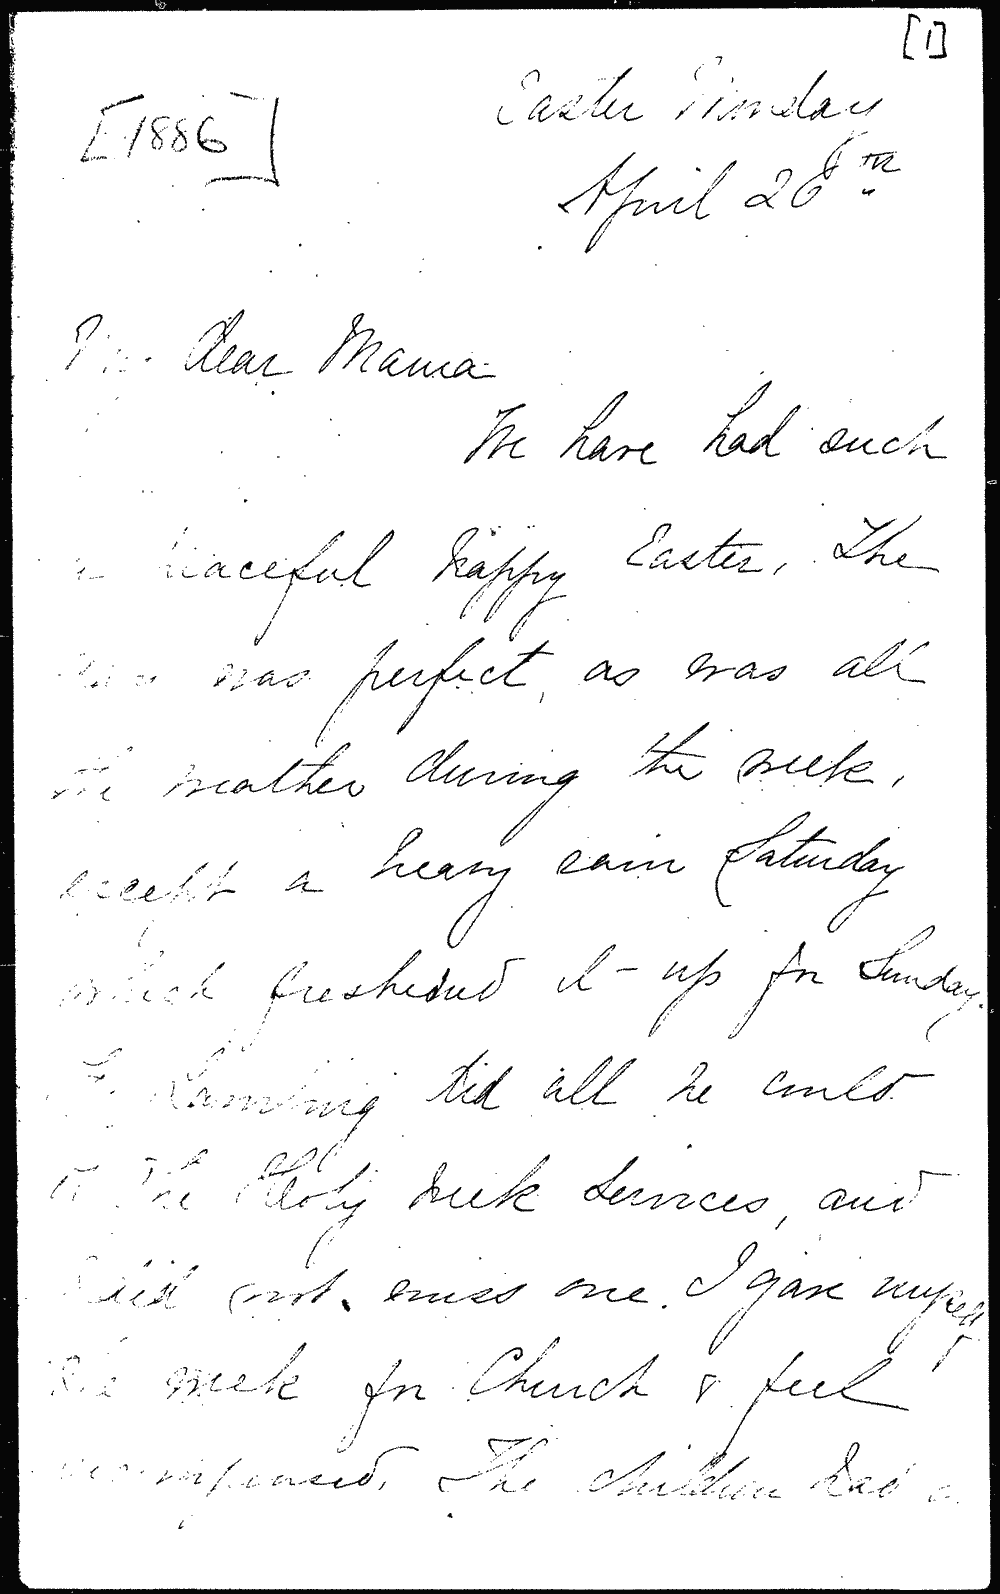 [1]
[1886]
Easter Monday
April 26th
My dear Mama
We have had such
a peaceful happy Easter. The
was perfect, as was all
the weather during the week,
except a heavy rain Saturday
which freshened it up for Sunday.
did all he could
the Holy Week services, and
I did not miss one. I gave myself
the week for Church & feel
recompensed. The children had a